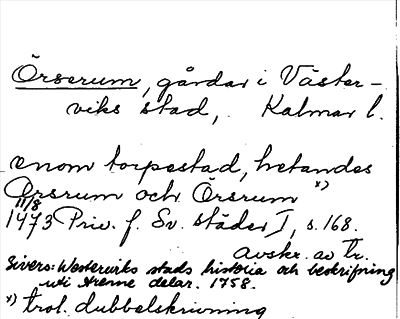 Örserum, gårdar i Väster-
viks stad, Kalmar l.
enom torpestad, hetandes
Orsrum och Örsrum x)
11/8
1473 Priv. f. Sv. städer I, s. 168.
Avskr. av Tr.
Sivers: Westerwiks stads historia och beskrifning
uti trenne delar. 1758.
x) trol. dubbelskrivning